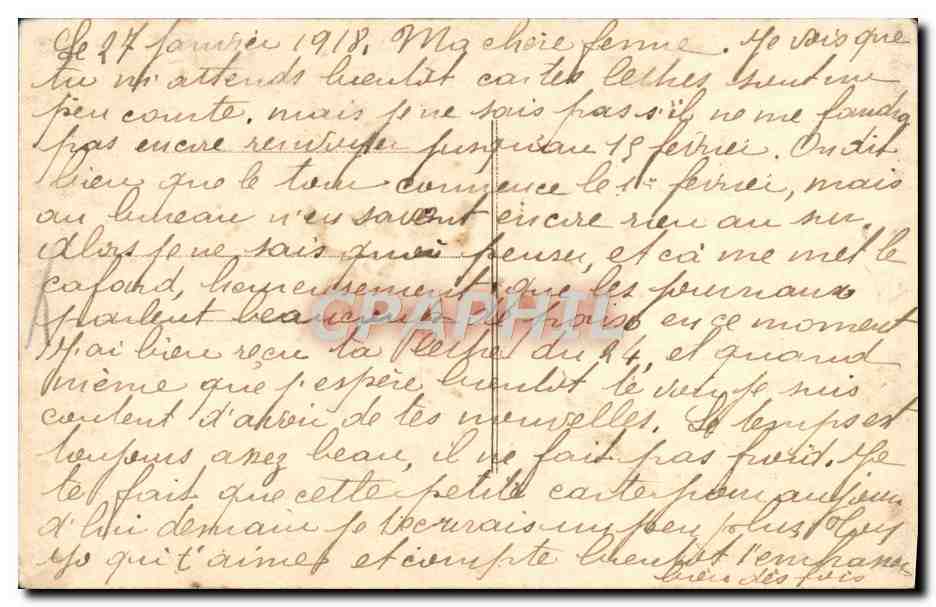 Le 27 Janvier 1918. Ma chère femme. Je vois que
tu m'attends bientôt cartes lettres sont un
peu courte. mais je ne sais pas s'il ne me faudra
pas encre jusqu'au 15 février. On dit
bien que le tour commence le 1er février, mais
au bureau n'en savent encre rien au sur
Alors je ne sais quoi penser, et cà me met le
cafard, heureusement que les journaux
parlent beaucoup de en ce moment
J'ai bien reçu ta lettre du 24, et quand
même que j'espère bientôt te voir je suis
content d'avoir de tes nouvelles. Le temps est
toujours assez beau, il ne fait pas froid. Je
te fait que cette petite carte pour aujour
d'hui demain je t'ecrirais un peu plus long
Jo qui t'aime et compte bientôt t'embrasser
bien des fois
CPAPHIL